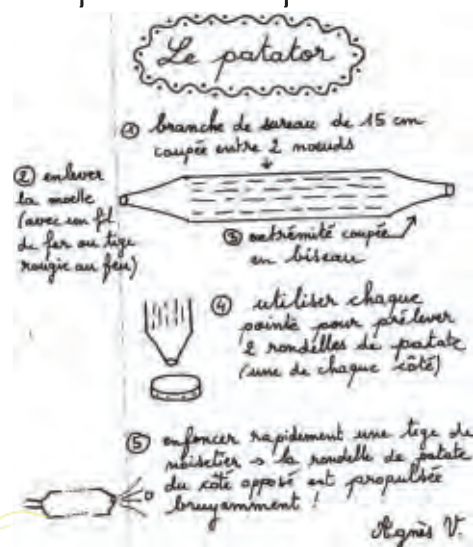 Le patator
① branche de sureau de 15 cm
coupée entre 2 nœuds
② enlever
la moelle
(avec un fil
de fer ou tige
rougie au feu)
③ extrémité coupée
en biseau
④ utiliser chaque
pointe pour prélever
2 rondelles de patate
(une de chaque côté)
⑤ enfoncer rapidement une tige de
noisetier → la rondelle de patate
du côté opposé est propulsée
bruyamment !
Agnès V.